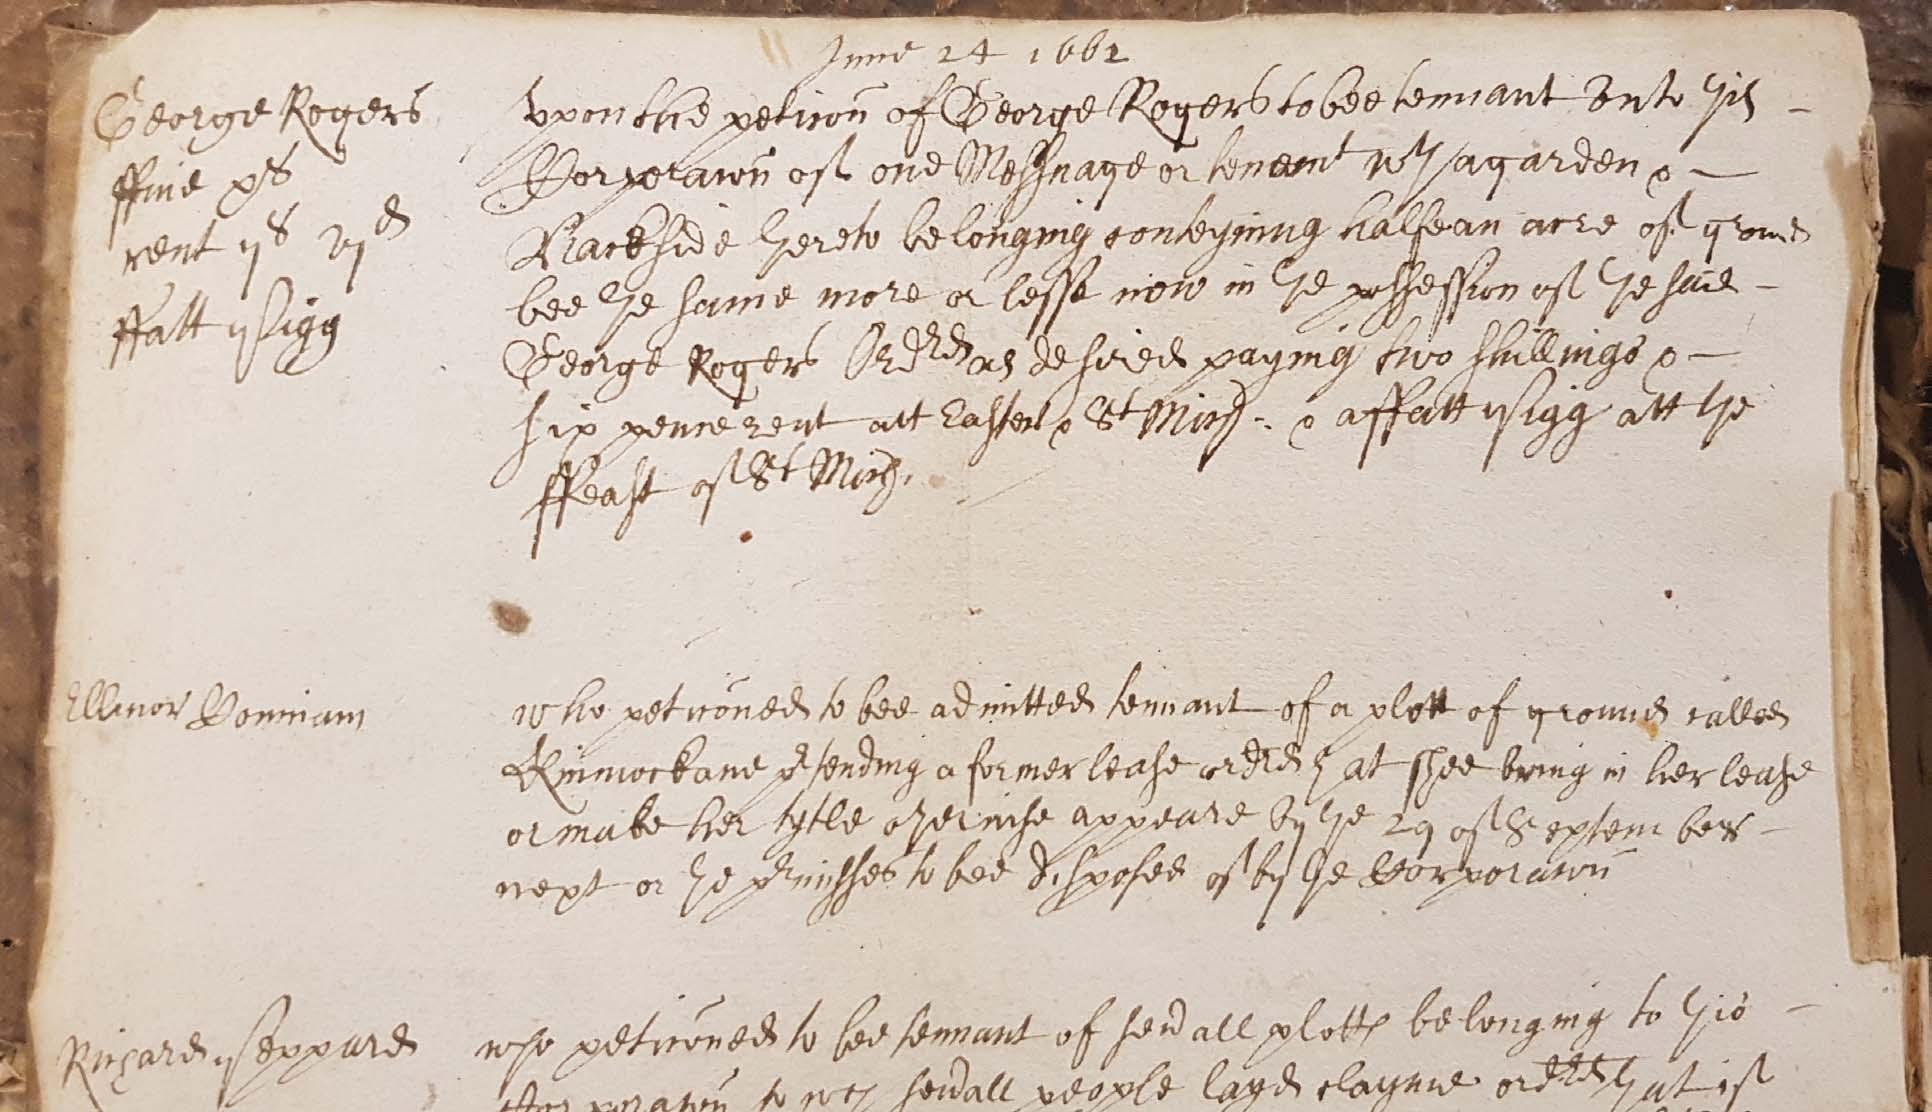 June 24 1662
George Rogers
ffine xs
rent ijs vjd
ffatt pigg
Upon the peticon of George Rogers to bee tennant unto this
Corporacon of one Messuage or tenemt wth a garden &
Backside thereto belonging conteyning halfe an acre of ground
bee the same more or lesse now in the possession of the said
George Rogers Ordrd as desired paying two shillings &
six pence rent att Easter & St Mich: & a ffatt pigg att the
ffeast of St Mich.
Ellinor
who peticoned to bee admitted tennant of a plott of ground called
prtending a former lease ordrd that shee bring in her lease
or make her tytle otherwise appeare by the 29 of September
next or the prmisses to bee disposed of by the Corporacon
Richard Sheppard
who peticoned to bee tennant of severall plotts belonging to this
Corporacon to wch severall people layd clayme ordrd that if